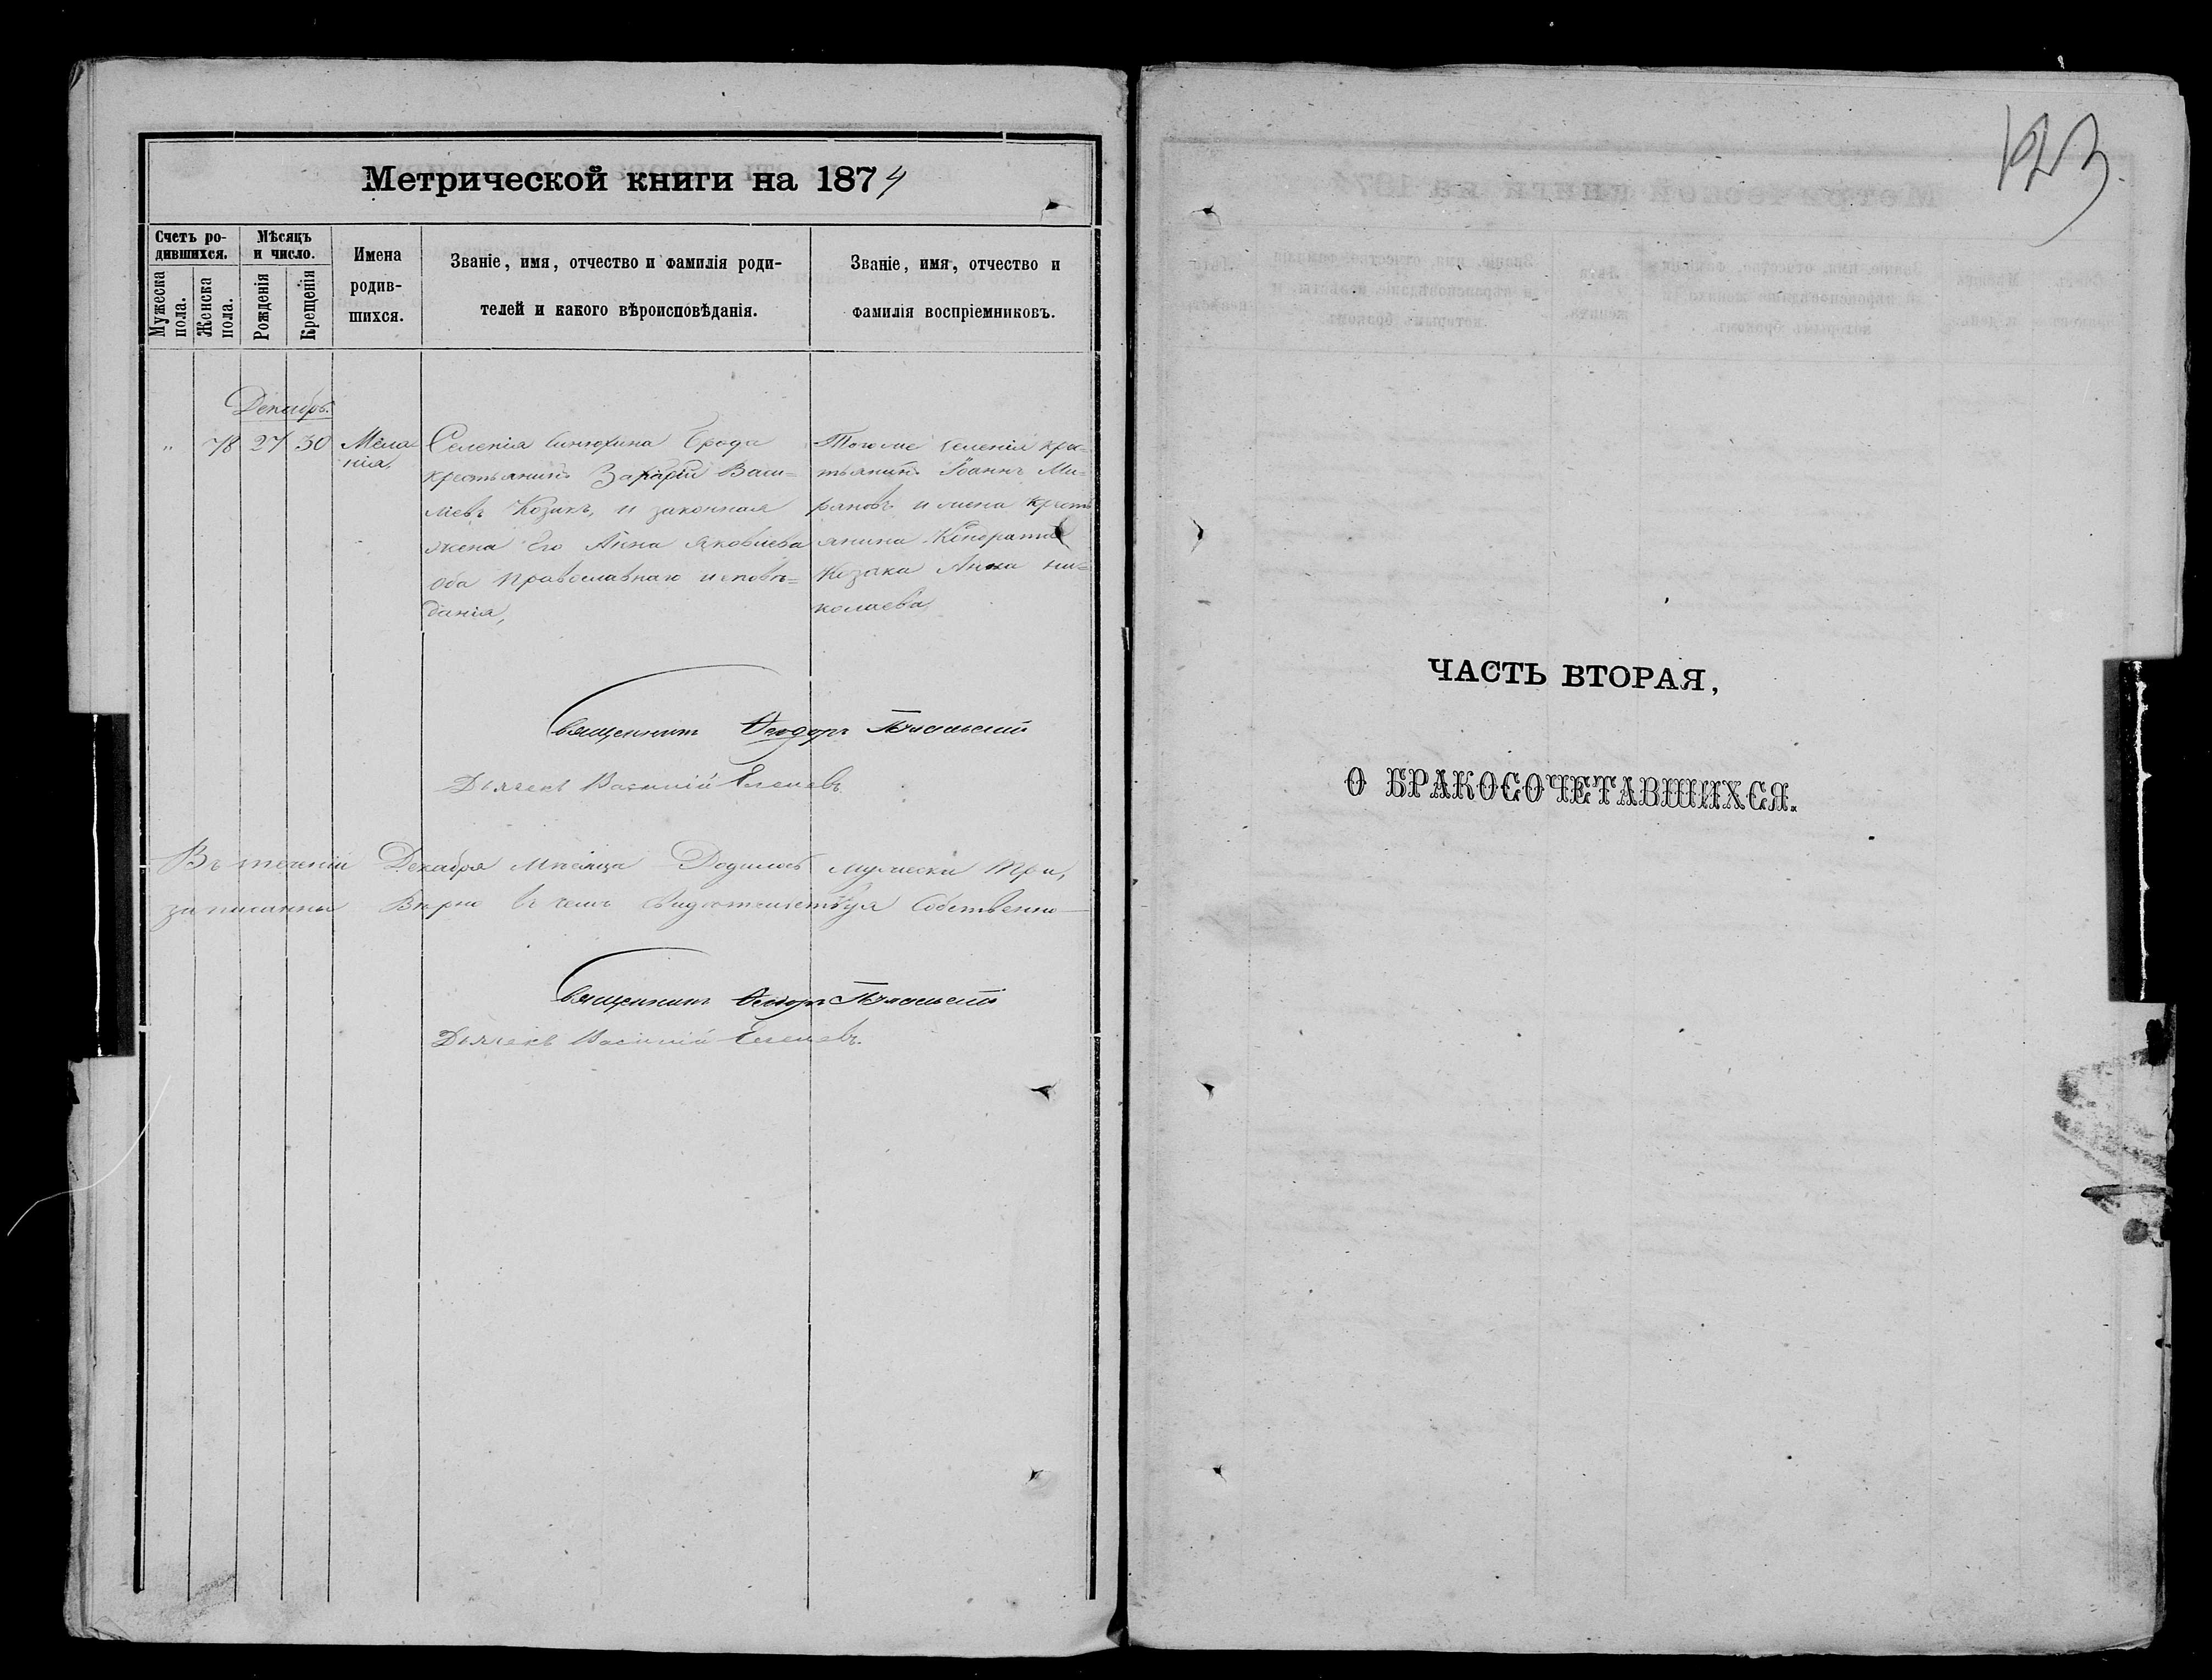 Метрической книги на 1874
Счетъ ро-
дившихся.
Мужеска
пола.
Женска
пола.
Мѣсяцъ
и число.
Рожденія
Крещенія
Имена
родив-
шихся.
Званіе, имя, отчество и фамилія роди-
телей и какого вѣроисповѣданія.
Званіе, имя, отчество и
фамилія воспріемниковъ.
Декабрь.
" 78 27 30
Мела
нія,
Селенія Синюхина Брода
крестьянинъ Захарій Васи=
ліевъ Козакъ, и законная
жена Его Анна Яковлева
оба Православнаго исповѣ=
данія,
Тогоже селенія крес-
тьянинъ Іоаннъ Ми-
роновъ и жена крест
янина Кондрата
Козака Анна Ни=
колаева,
Священникъ Ѳеодоръ
Дьячекъ Василій
Въ теченіи Декабря Мѣсяца Родилось мужески три,
записанны Вѣрно въ чемъ свидѣтельствуя Собственно-
Священникъ Ѳеодоръ
Дьячекъ Василій
123.
ЧАСТЬ ВТОРАЯ,
О БРАКОСОЧЕТАВШИХСЯ.